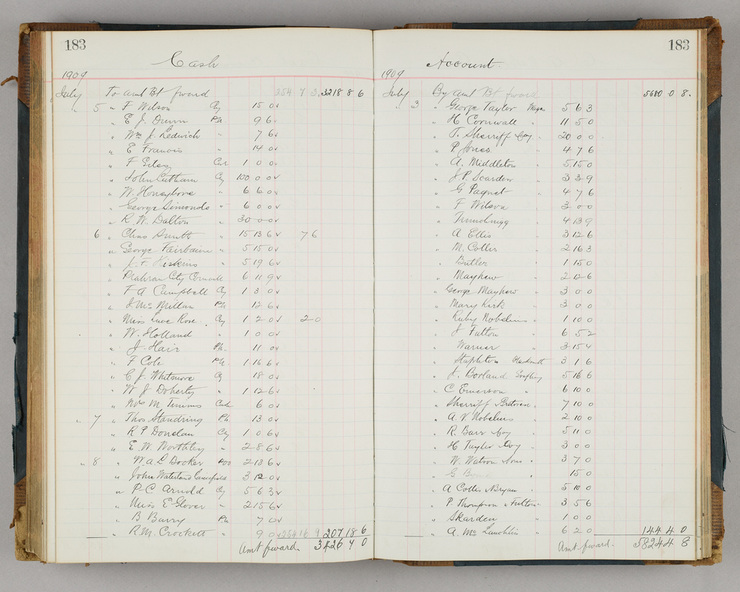 183
Cash
1909
July To Amt Bt forward 354 7 3 3218 8 6
" 5 " F Wilson Cq 15 0
" E J Dunn Pk 9 6
" Wm J Ledwich " 7 6
" E Francis " 14 0
" F Eilsy 1 0 0
" John Eastham Cq 100 0 0
" W. Honeybone " 6 6 0
" George Simonds " 6 0 0
" R. W. Dalton " 30 0 0
6 " Chas Smith " 15 13 6 7 6
" George Fairbairn " 5 15 0
" J. F. Hoskins " 5 19 6
" Prahran City Council 6 11 9
" F A Campbell Cq 1 3 0
" J McMillan Pk 12 6
" Miss Rose Cq 1 2 0 2 0
" W. Holland " 1 0 0
" J Hair Pk 11 0
" T Cole 1 16 6
" C. J. Whitmore Cq 18 0
" W J Doherty " 1 12 6
" Mrs M. Timms 6 0
" 7 " Thos Standring Pk 13 0
" R P Donelan Cq 1 0 6
" E. W. Worthley " 2 8 6
" 8 " W. A. E Booker 2 13 6
" John Waterland 3 12 0
" P. C Arnold Cq 5 6 3
" Miss E Glover " 2 15 6
" B Barry Pk 7 0
" R. M. Crockett " 9 0 354 16 9 207 18 6
Amt forward. 3426 7 0
183
Account
1909
July By Amt Bt forward 5680 0 8
" 3 " George Taylor Wages 5 6 3
" H Cornwall " 11 5 0
" T. Sherriff " 20 0 0
" P Jones " 4 7 6
" A. Middleton " 5 15 0
" J P. Scarden " 3 3 9
" G Pagnet " 4 7 6
" F Wilson " 3 0 0
" 4 13 9
" A Ellis " 3 12 6
" M. Coller " 2 16 3
" Butler " 1 15 0
" Mayhew " 2 12 6
" George Mayhew " 3 0 0
" Mary Kirk " 3 0 0
" Ruby Nobelius " 1 10 0
" J Patton " 6 5 2
" Warner " 3 15 4
" Stapleton 3 1 6
" J. Borland 5 16 6
" C Emerson " 6 10 0
" Sherriff " 7 10 0
" A. V Nobelius " 2 10 0
" R. Barr " 5 11 0
" H Taylor " 3 0 0
" W. Watson " 3 7 0
" 15 0
" A Coller " 5 10 0
" P. Thompson 3 5 6
" Skarden " 1 0 0
" A. McLauchlin " 6 2 0 144 4 0
Amt forward. 5824 4 8